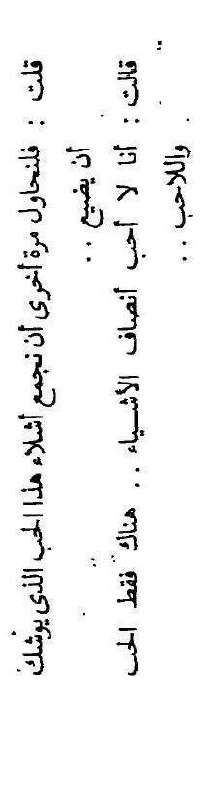 قلت : فلنحاول مرة أخرى أن نجمع أشلاء هذا الحب الذى يوشك
أن يضيع ..
قالت : أنا لا أحب أنصاف الأشياء .. هناك فقط الحب
واللاحب ..